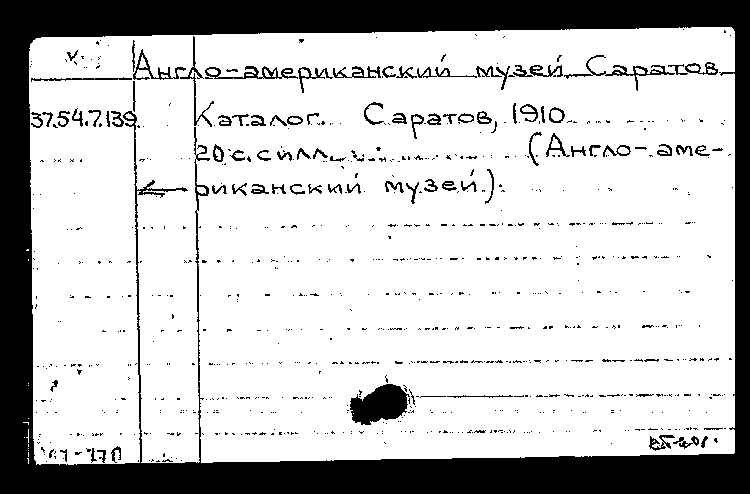 К.
Англо-американский музей, Саратов
37.54.7.139. Каталог. Саратов, 1910
20 с. с илл. (Англо-аме-
риканский музей).